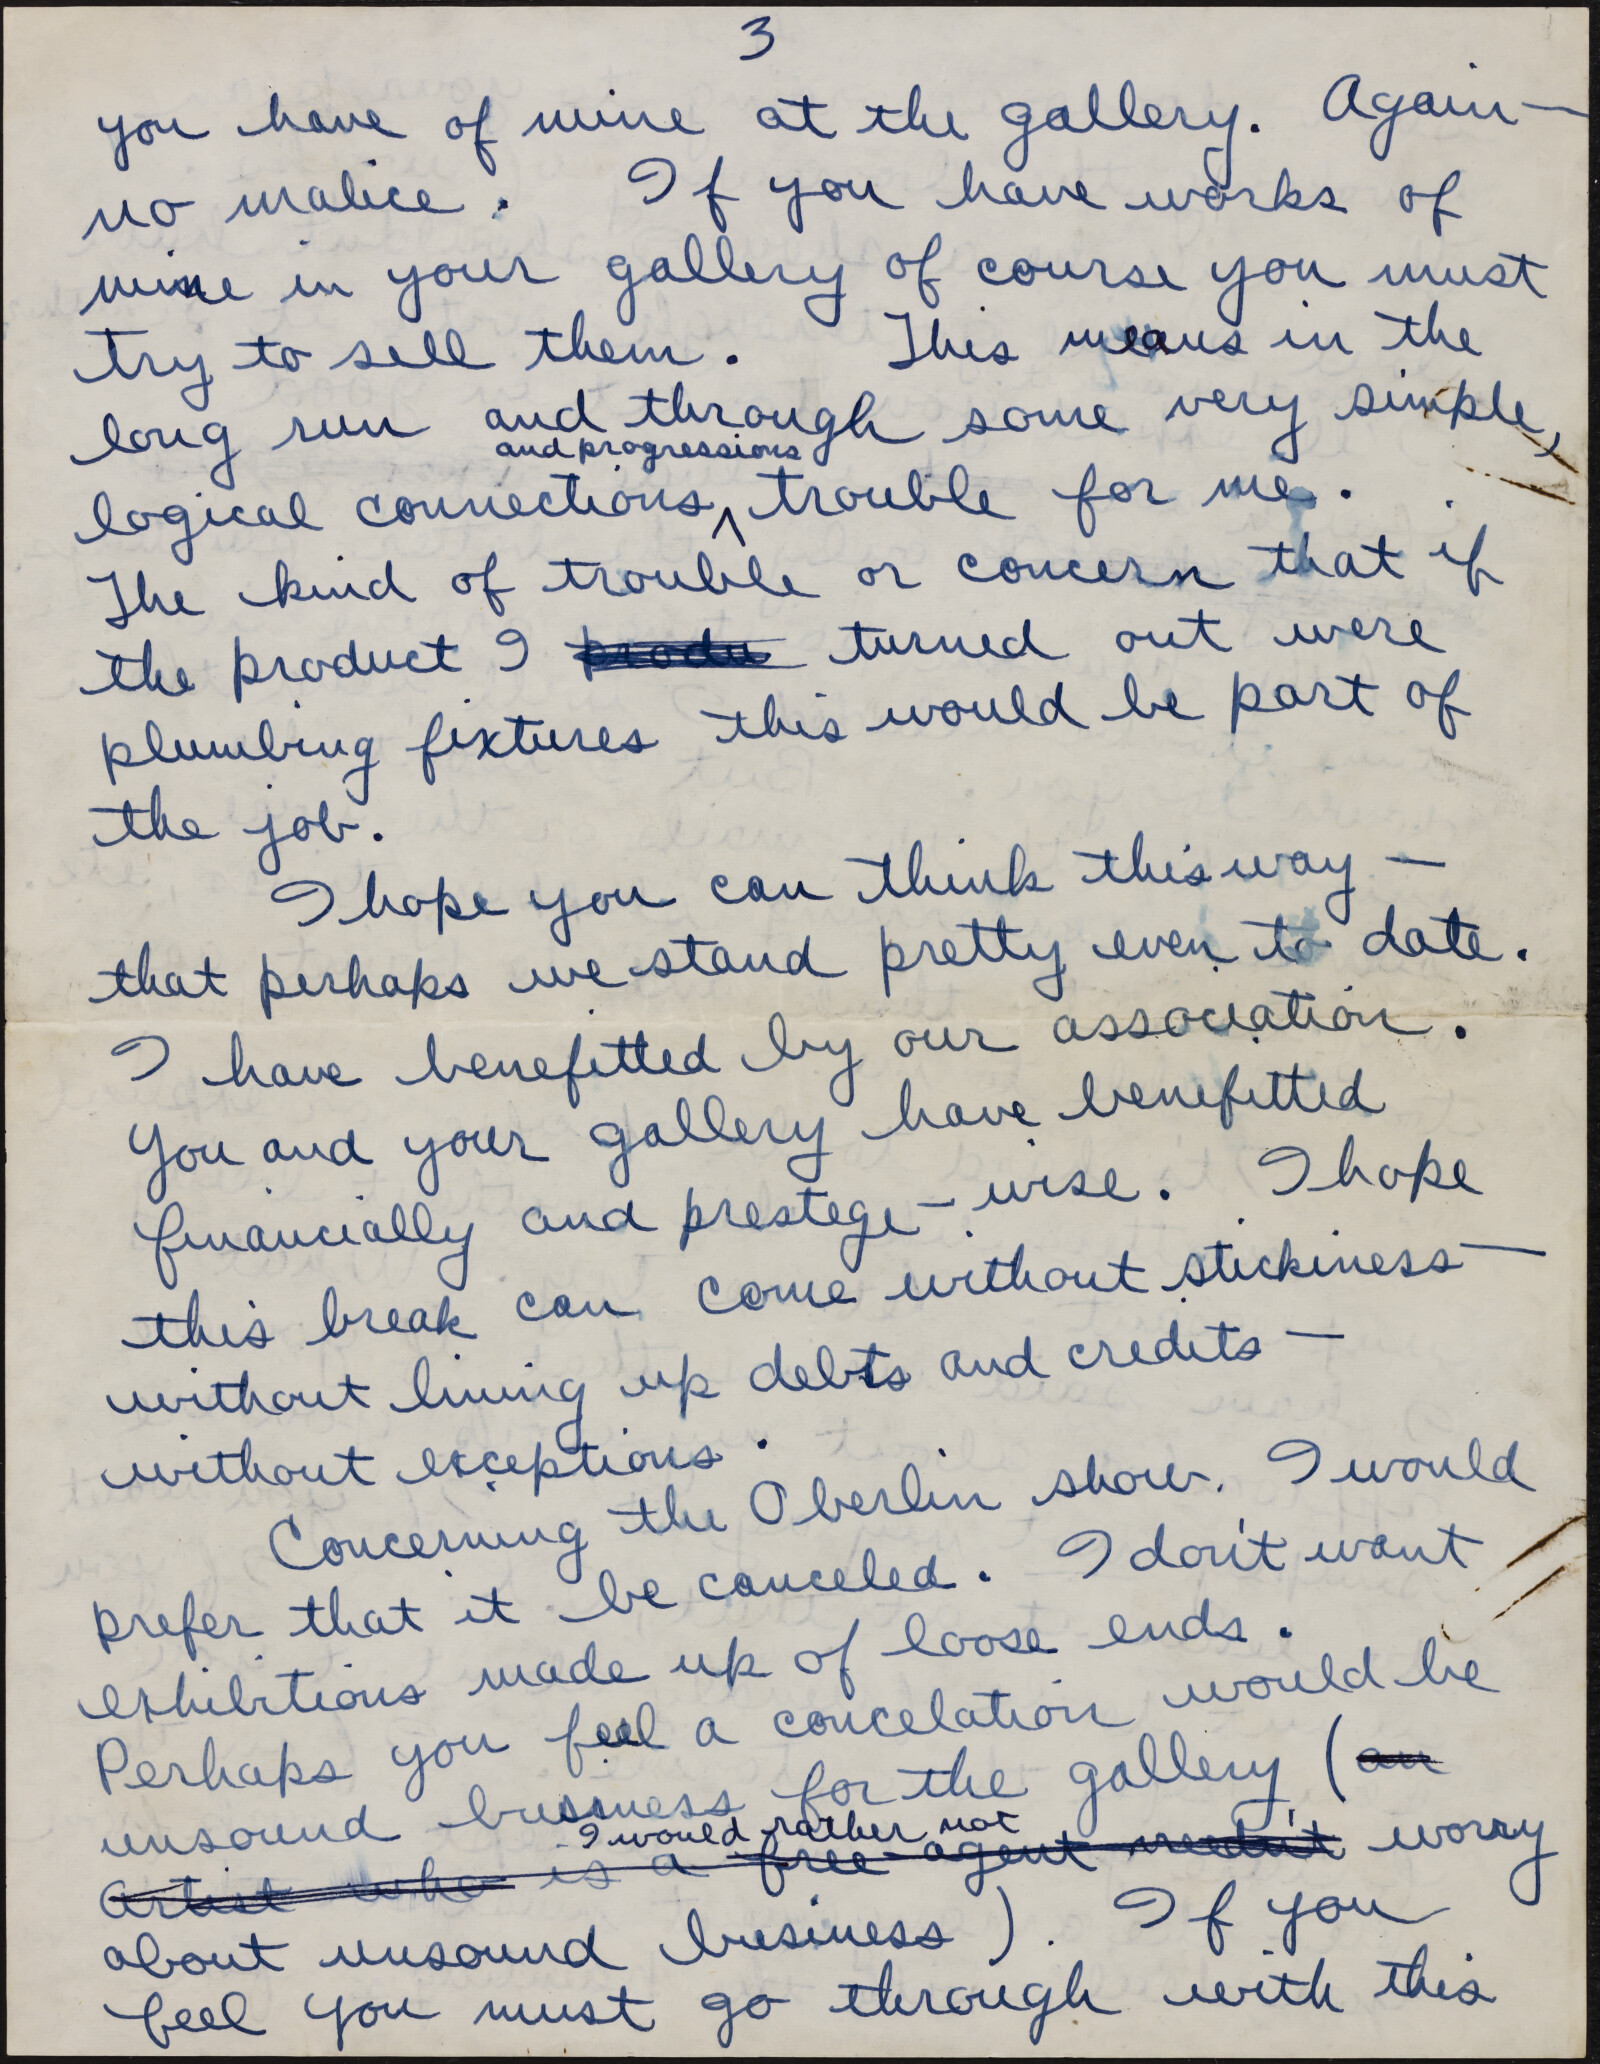 3
you have of mine at the gallery. Again—
no malice. If you have works of
mine in your gallery of course you must
try to sell them. This means in the
long run and through some very simple,
and progressions
logical connections ^ trouble for me.
The kind of trouble or concern that if
the product I produ turned out were
plumbing fixtures this would be part of
the job.
I hope you can think this way —
that perhaps we stand pretty even to date.
I have benefitted by our association.
You and your gallery have benefitted
financially and prestege-wise. I hope
this break can come without stickiness—
without lining up debts and credits —
without exceptions.
Concerning the Oberlin show. I would
prefer that it be canceled. I don't want
exhibitions made up of loose ends.
Perhaps you feel a concelation would be
unsound bussness for the gallery (an
I would rather not
artist who is a free agent needn't worry
about unsound business). If you
feel you must go through with this